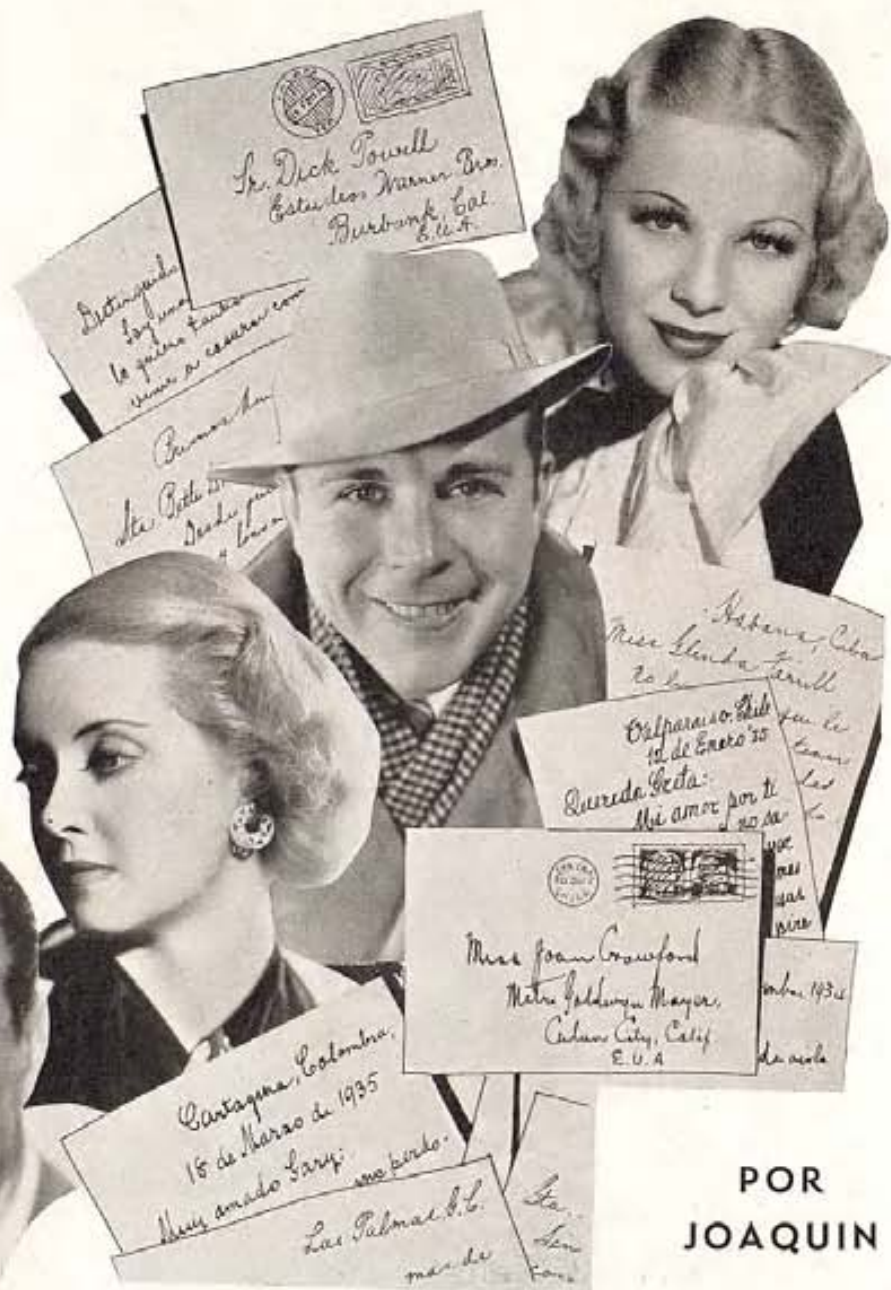 Sr. Dick Powell
Estudios Warner Bros.
Burbank, Cal.
E.U.A.
Distinguido
Soy una
lo quiero tanto
venir a casarse con
Buenos
Sta Bette
Desde
Habana, Cuba
Miss Glenda Farrell
que le
Valparaiso, Chile
12 de Enero '35
Querida Greta:
Mi amor por ti
no sa-
Miss Joan Crawford
Metro Goldwyn Mayer,
Culver City, Calif
E.U.A
1934
Cartagena, Colombia,
18 de Marzo de 1935
Muy amado Gary:
me perdo-
Las Palmas G.C.
mas de
Sta.
POR
JOAQUIN